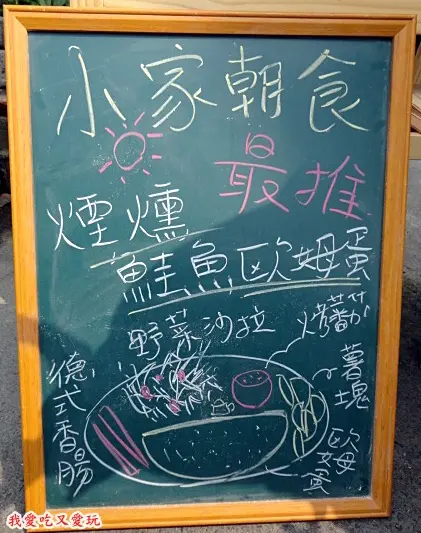 小家朝食
最推
煙燻
鮭魚歐姆蛋
野菜沙拉
烤蕃茄
薯塊
歐姆蛋
德式香腸
我愛吃又愛玩